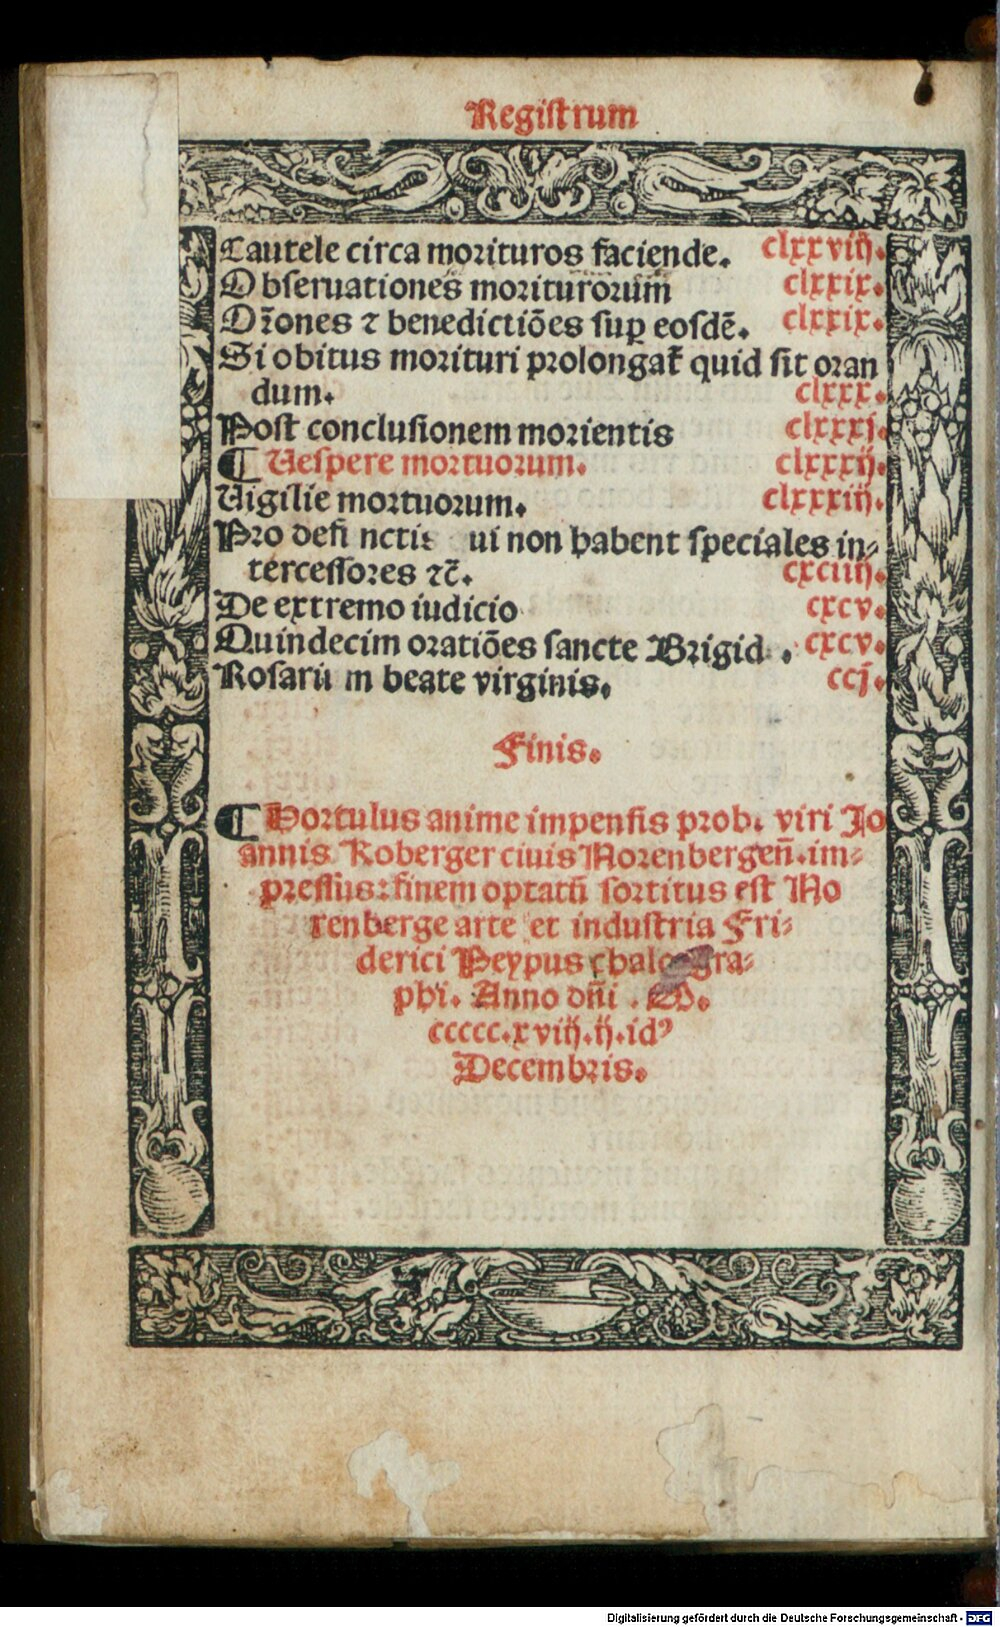 Registrum
Cautele circa morituros faciende. clxxviij.
Obseruationes moriturorum clxxix.
Orōnes ⁊ benedictiōes sup eosdē. clxxix.
Si obitus morituri prolongat̄ quid sit oran
dum. clxxx.
Post conclusionem morientis clxxxj.
¶ Uespere mortuorum. clxxxij.
Uigilie mortuorum. clxxxiij.
Pro defi nctis ui non habent speciales in⸗
tercessores ⁊c̄. cxciiij.
De extremo iudicio cxcv.
Quindecim oratiōes sancte Brigid . cxcv.
Rosariu m beate virginis. ccj.
Finis.
¶ Hortulus anime impensis prob. viri Jo
annis Koberger ciuis Norenbergen̄.im⸗
pressus: finem optatū sortitus est No
renberge arte et industria Fri⸗
derici Peypus chalcogra⸗
phi. Anno dn̄i . M.
ccccc.xviij.ij.idꝰ
Decembris.
Digitalisierung gefördert durch die Deutsche Forschungsgemeinschaft - DFG